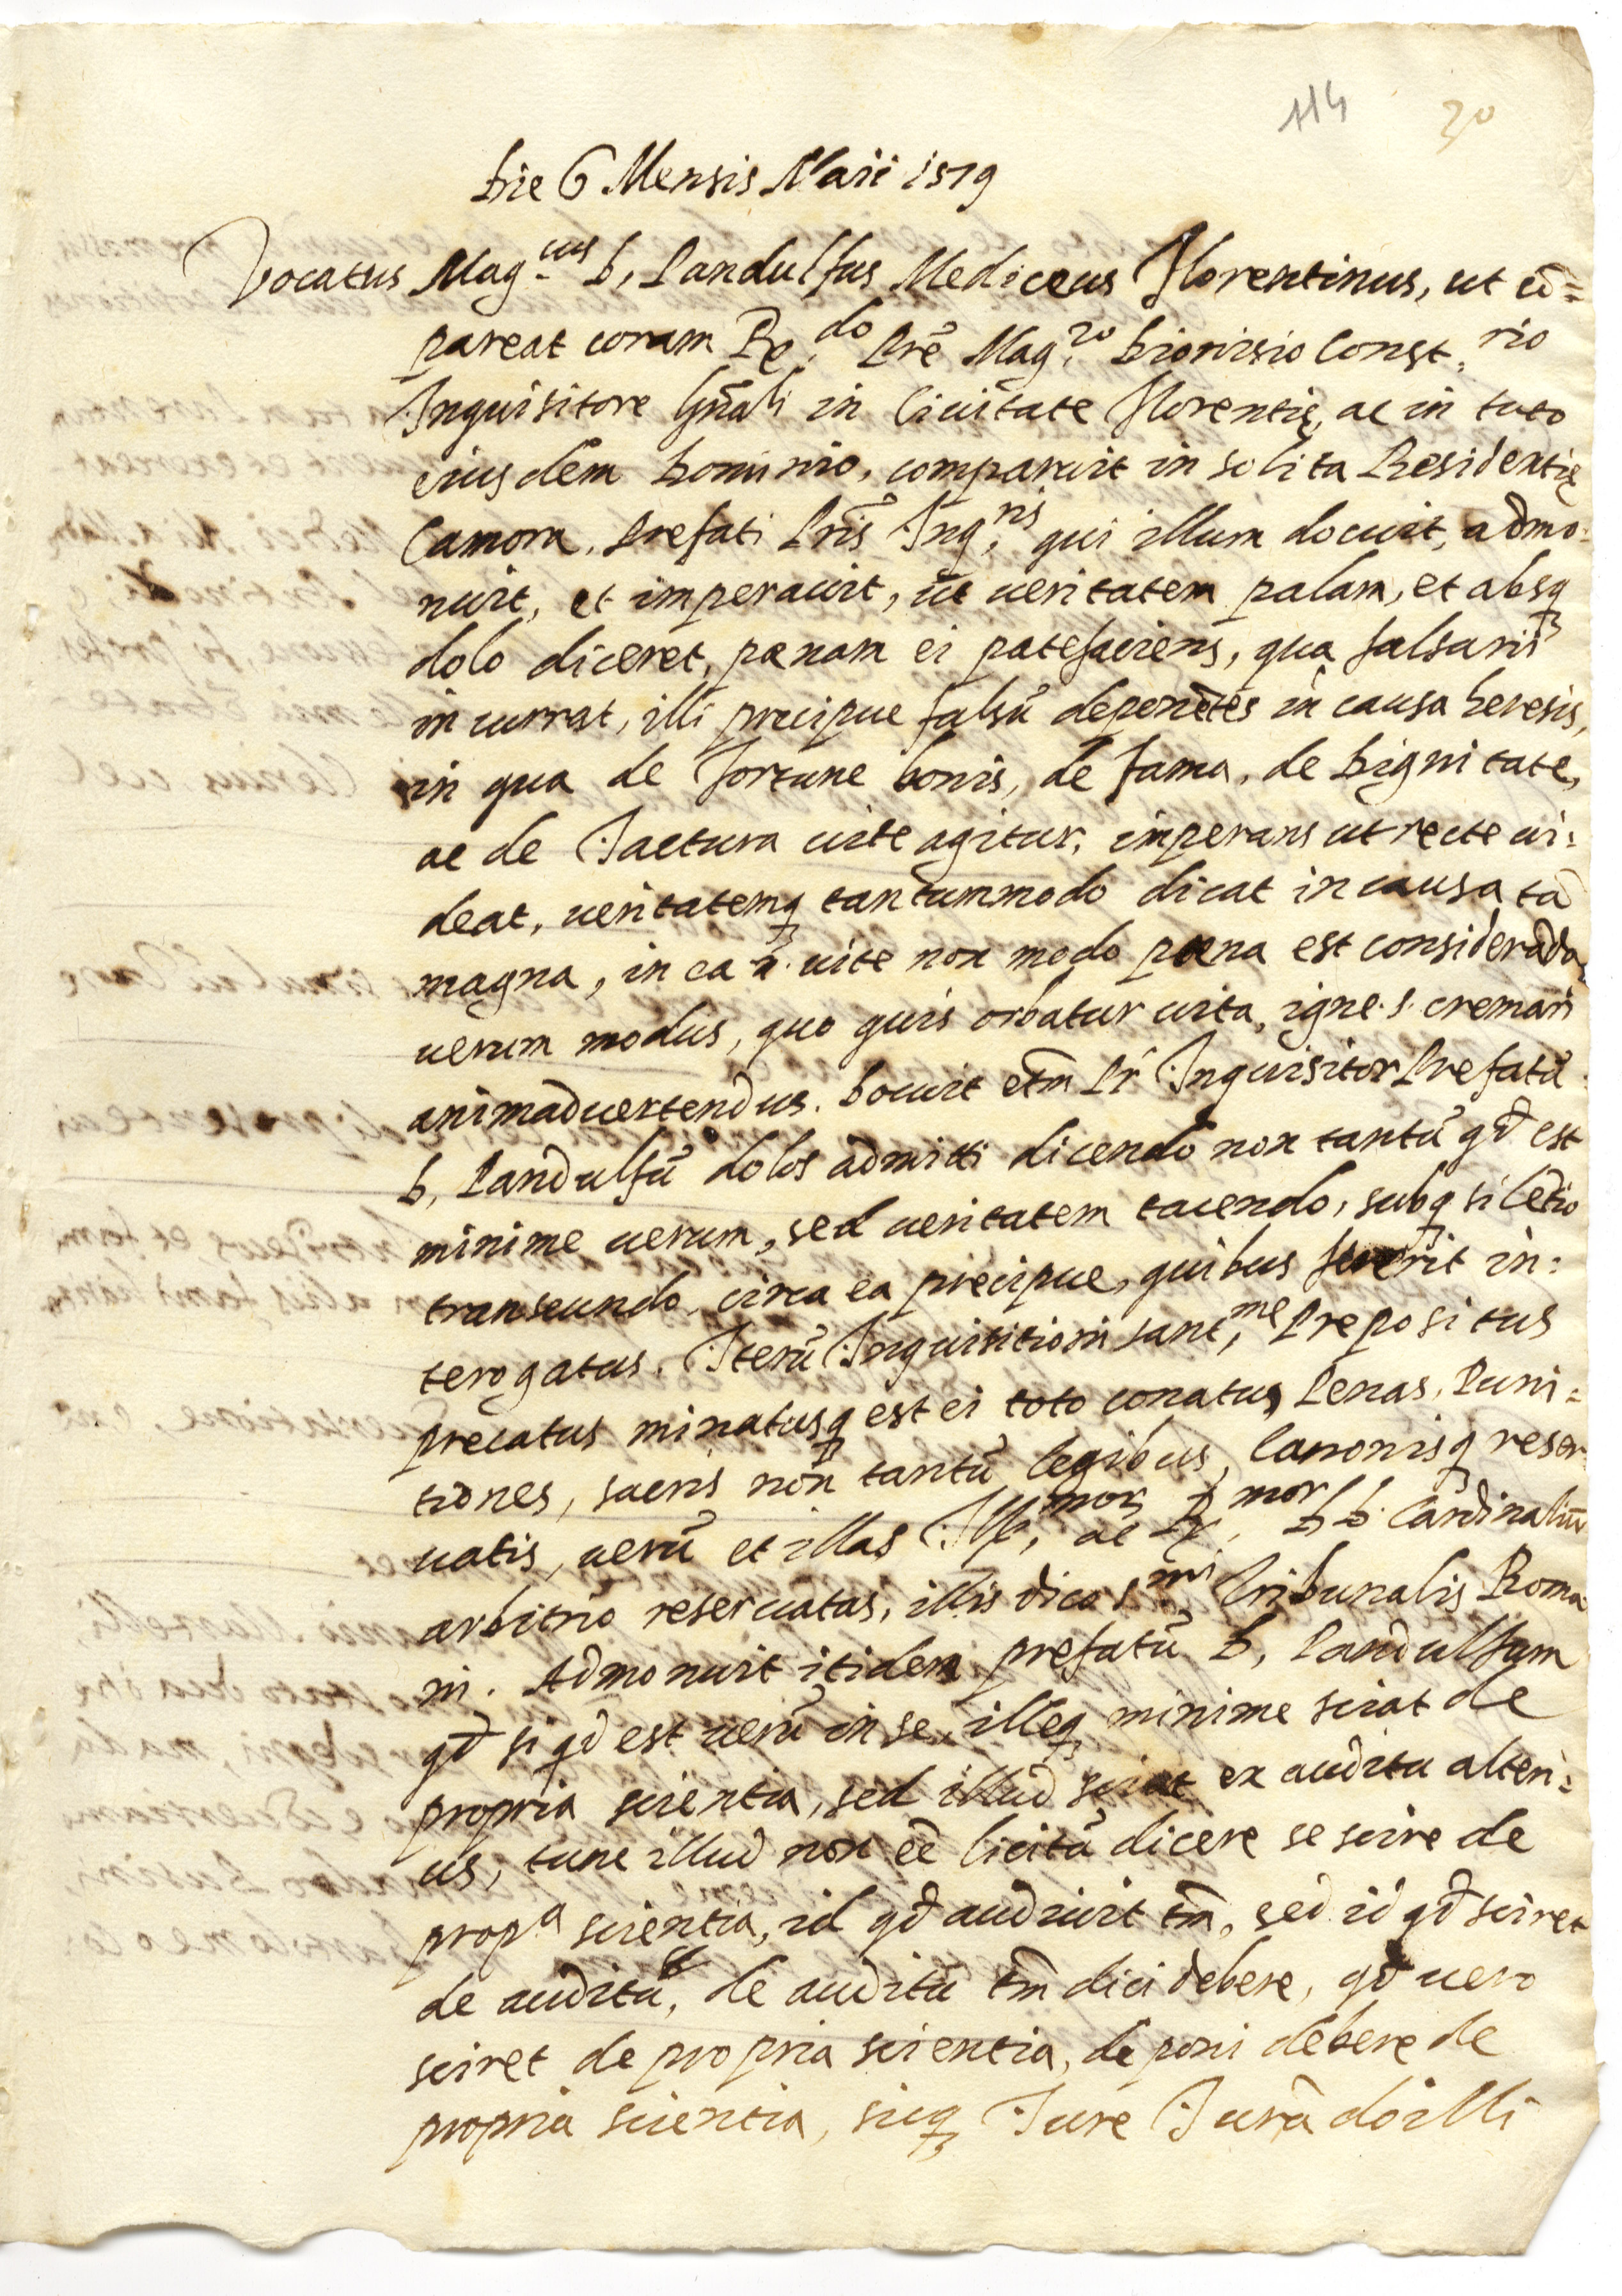 114 20
Die 6 Mensis Maii 1579
Vocatus Mag.cus D. Pandulfus Mediceus Florentinus, ut cō=
pareat coram Re.do Prē Mag.ro Dionisio Const.rio
Inquisitore Gn̄ali in Ciuitate Florentię, ac in toto
eiusdem Dominio, comparuit in solita Residentię
Camora, Prefati Pris̄ Inq.ris qui illum docuit, admo=
nuit, et imperauit, ut ueritatem palam, et absq3
dolo diceret, pœnam ei patefaciens, qua falsarii
incurrat, illi precipue falsū deponētes in causa heresis,
in qua de Fortune bonis, de fama, de Dignitate,
ac de Iactura uite agitur, imperans ut recte ui=
deat, ueritatemq3 tantummodo dicat in causa tā
magna, in ea n. uite non modo pœna est consideranda
uerum modus, quo quis orbatur uita, igne .s. cremari
animaduertendus. Docuit etm̄ Pr̄ Inquisitor Prefatū
D. Pandulfū dolos admitti dicendo non tantū qd̄ est
minime uerum, sed ueritatem tacendo, subq3 silētio
transeundo, circa ea precipue, quibus fuerit in=
terogatus. Iterū Inquisitioni sanct.me Prepositus
precatus minatusq3 est ei toto conatus, Penas, Puni=
tiones, sacris non tantū legibus, Canonisq3 reser=
uatis, uerū et illas Ill.mor, ac R.mor DD. Cardinaliū
arbitrio reseruatas, illis dico S.mi Tribunalis Roma
ni. Admonuit itidem prefatū D. Pandulfum
qd̄ si qd̄ est uerū in se, illeq3 minime sciat de
propria scientia, sed illud sciat ex auditu alteri=
us, tunc illud non eē licitū dicere se scire de
prop.a scientia, id qd̄ audiuit tm̄, sed id qd̄ sciret
de auditu, de auditu tm̄ dici debere, qd̄ uero
sciret de propria scientia, deponi debere de
propria scientia, sicq3 Iure Iurādo illi